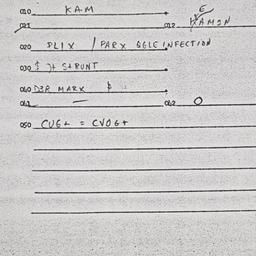 010 KAM
E
021 012 KAMON
020 PLIX / PARX GGLE INFECTION
030 $ H STRUNT
040 DOR MARK
041 — 042 O
050 CUG+ = CVOG+